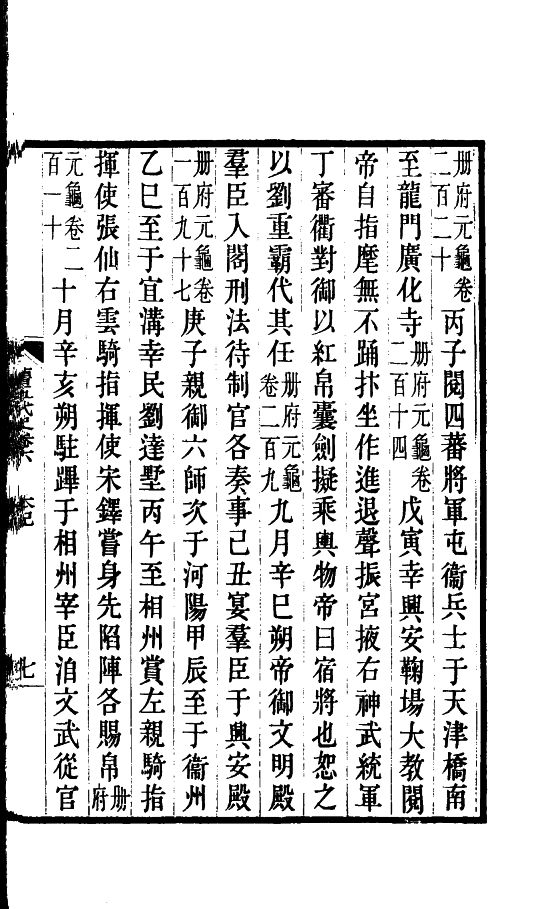 册府元龜卷二百二十丙子閱四蕃將軍屯衞兵士于天津橋南
至龍門廣化寺册府元龜卷二百十四戊寅幸興安鞠場大教閱
帝自指麾無不踊抃坐作進退聲振宮掖右神武統軍
丁審衢對御以紅帛囊劍擬乘輿物帝曰宿將也恕之
以劉重霸代其任册府元龜卷二百九九月辛巳朔帝御文明殿
羣臣入閤刑法待制官各奏事己丑宴羣臣于興安殿
册府元龜卷一百九十七庚子親御六師次于河陽甲辰至于衞州
乙巳至于宜溝幸民劉達墅丙午至相州賞左親騎指
揮使張仙右雲騎指揮使宋鐸嘗身先陷陣各賜帛册府
元龜卷二百一十十月辛亥朔駐蹕于相州宰臣洎文武從官
七